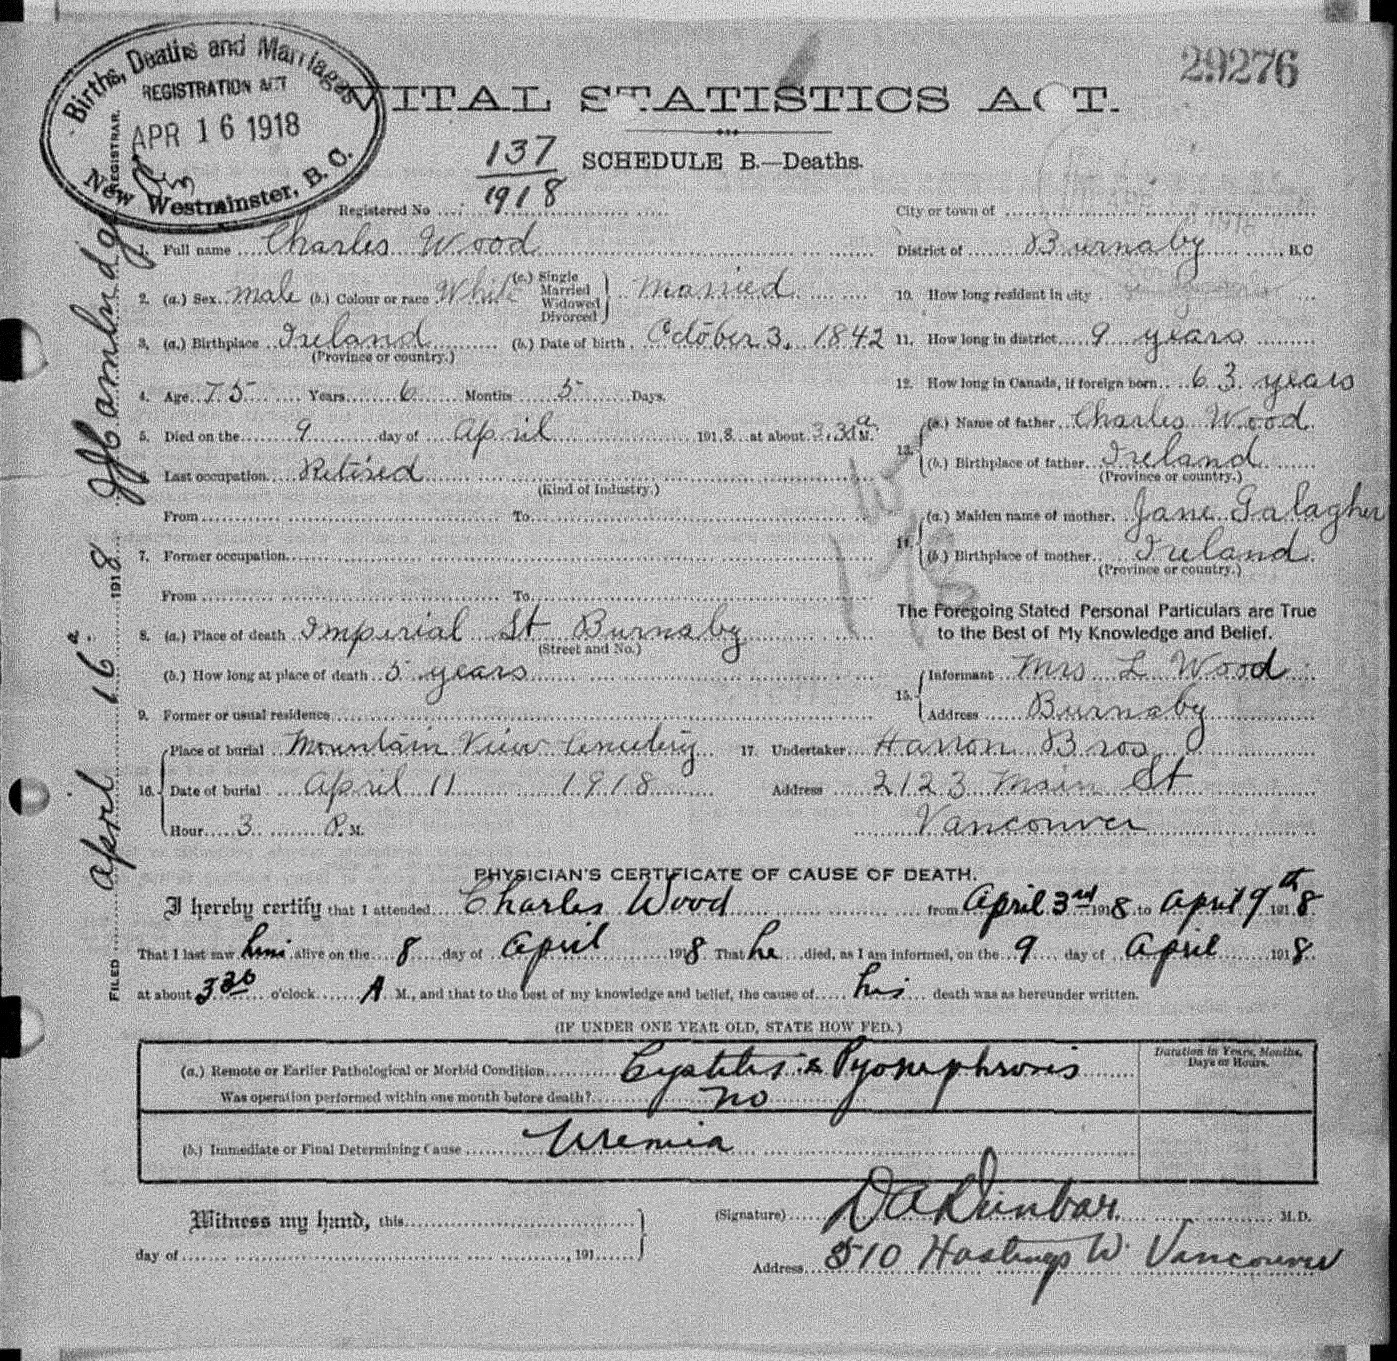 29276
Births, Deaths and Marriages
REGISTRATION ACT
APR 16 1918
REGISTRAR.
New Westminster, B.C.
VITAL STATISTICS ACT.
137
1918
SCHEDULE B.—Deaths.
Registered No
City or town of
1. Full name Charles Wood
District of Burnaby B.C
2. (a.) Sex male (b.) Colour or race White (c.) Single Married Widowed Divorced } Married
10. How long resident in city
3. (a.) Birthplace Ireland (b.) Date of birth October 3, 1842
(Province or country.)
11. How long in district 9 years
4. Age 75 Years 6 Months 5 Days.
12. How long in Canada, if foreign born 63 years
5. Died on the 9 day of April 1918 at about 3.30 a M.
13. (a.) Name of father Charles Wood
(b.) Birthplace of father Ireland
(Province or country.)
6. Last occupation Retired
(Kind of Industry.)
From To
14. (a.) Maiden name of mother Jane Galagher
(b.) Birthplace of mother Ireland
(Province or country.)
7. Former occupation
From To
The Foregoing Stated Personal Particulars are True
to the Best of My Knowledge and Belief.
8. (a.) Place of death Imperial St Burnaby
(Street and No.)
(b.) How long at place of death 5 years
15. Informant Mrs L Wood
Address Burnaby
9. Former or usual residence
16. Place of burial Mountain View Cemetery
Date of burial April 11 1918
Hour 3 P. M.
17. Undertaker Harron Bros
Address 2123 Main St
Vancouver
FILED April 16 1918
PHYSICIAN'S CERTIFICATE OF CAUSE OF DEATH.
I hereby certify that I attended Charles Wood from April 3rd 1918 to April 9th 1918
That I last saw him alive on the 8 day of April 1918 That he died, as I am informed, on the 9 day of April 1918
at about 3 30 o'clock A M., and that to the best of my knowledge and belief, the cause of his death was as hereunder written.
(IF UNDER ONE YEAR OLD, STATE HOW FED.)
Duration in Years, Months,
Days or Hours.
(a.) Remote or Earlier Pathological or Morbid Condition Cystitis & Pyonephrosis
Was operation performed within one month before death? no
(b.) Immediate or Final Determining Cause Uremia
Witness my hand, this
day of , 191
(Signature) D A Dunbar M.D.
Address 510 Hastings W. Vancouver